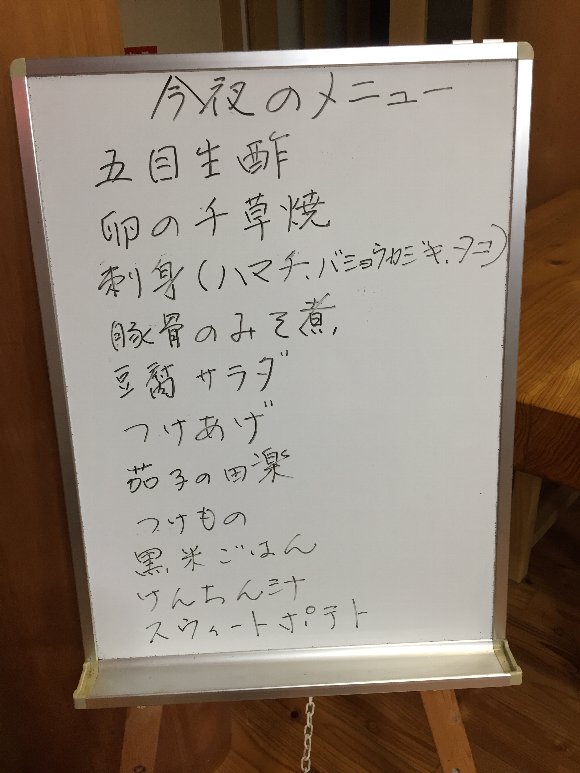 今夜のメニュー
五目生酢
卵の千草焼
刺身(ハマチ、バショウカジキ、タコ)
豚骨のみそ煮
豆腐サラダ
つけあげ
茄子の田楽
つけもの
黒米ごはん
けんちん汁
スウィートポテト